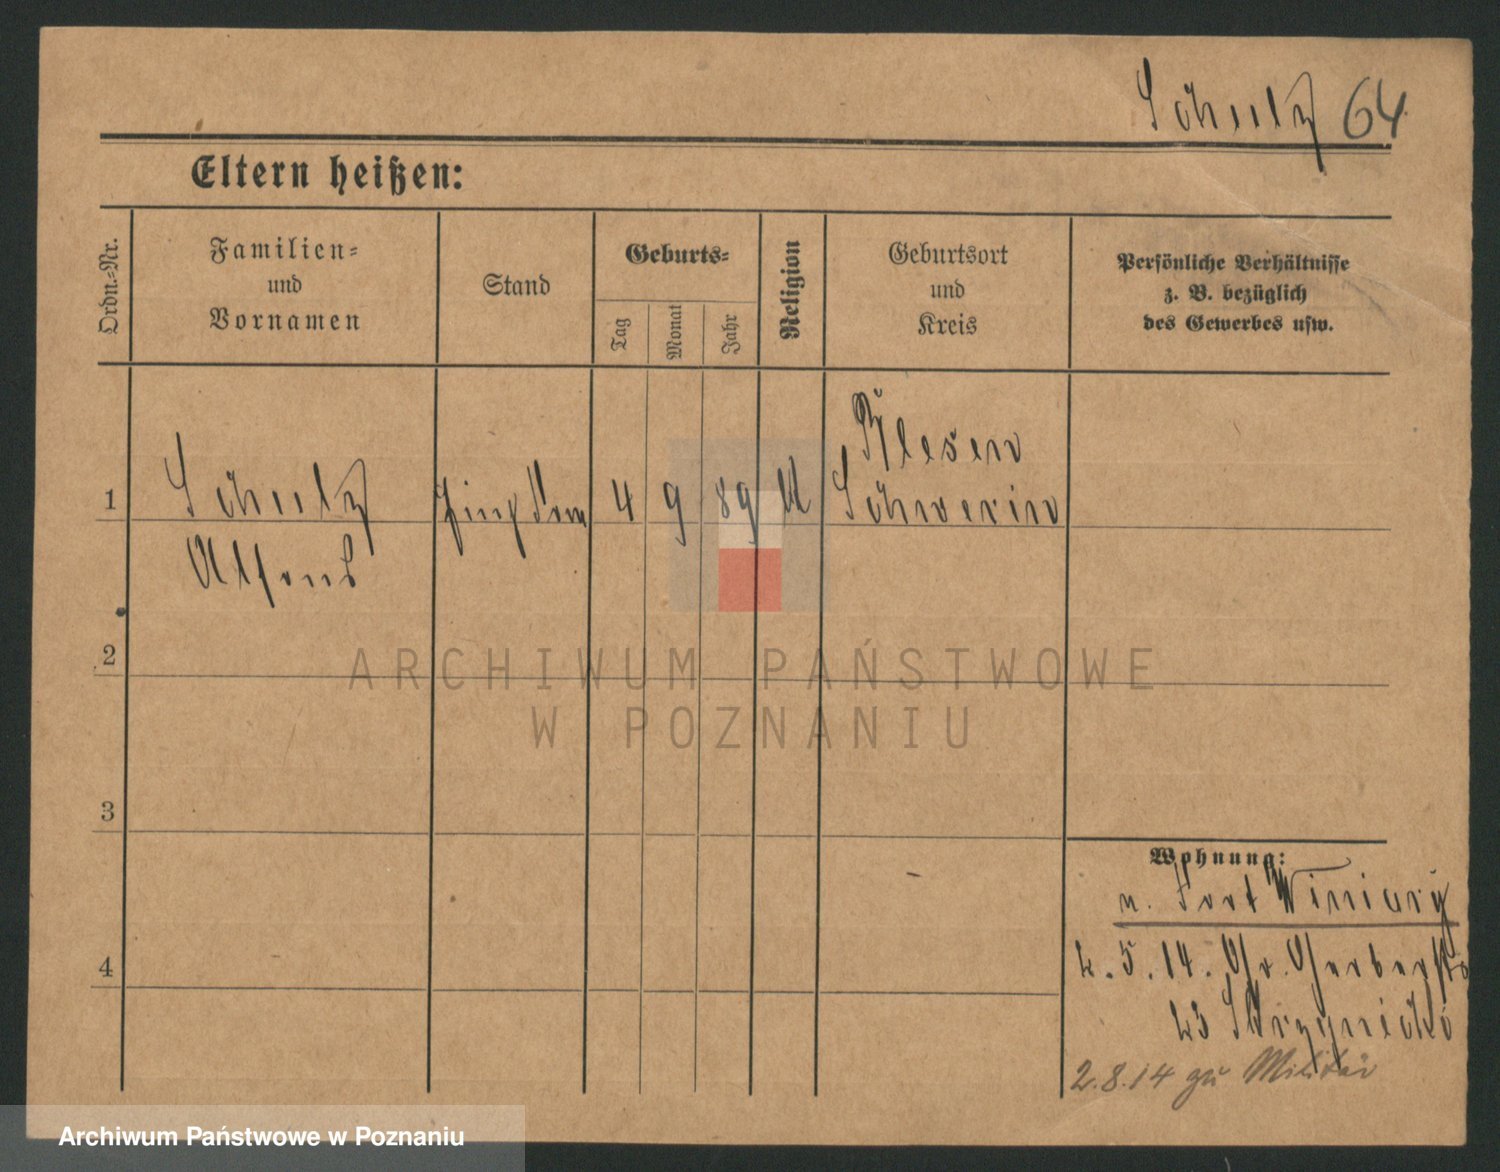 Schultz 64
Eltern heißen:
Ordn.-Nr.
Familien-
und
Vornamen
Stand
Geburts-
Tag
Monat
Jahr
Religion
Geburtsort
und
Kreis
Persönliche Verhältnisse
z. B. bezüglich
des Gewerbes usw.
1
Schultz
Alfons
4 9 89
Blesen
Schwerin
2
3
4
Wohnung:
n. Fort Winiary
2. 5. 14. Gr. Gerberstr
23
2.8.14 zu Militär
ARCHIWUM PAŃSTWOWE
W POZNANIU
Archiwum Państwowe w Poznaniu